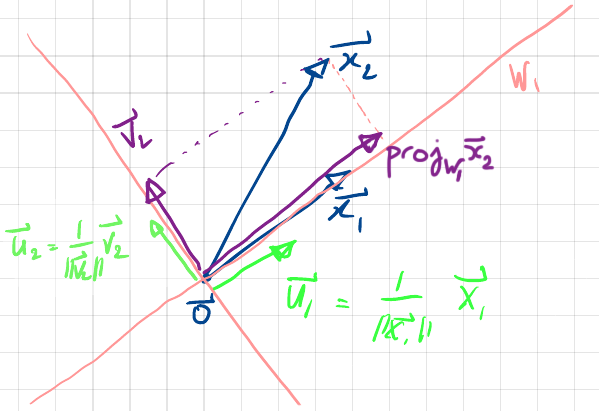 x⃗₂
W₁
v⃗₂
proj_W₁ x⃗₂
x⃗₁
u⃗₂ = 1/||v⃗₂|| v⃗₂
0⃗
u⃗₁ = 1/||x⃗₁|| x⃗₁